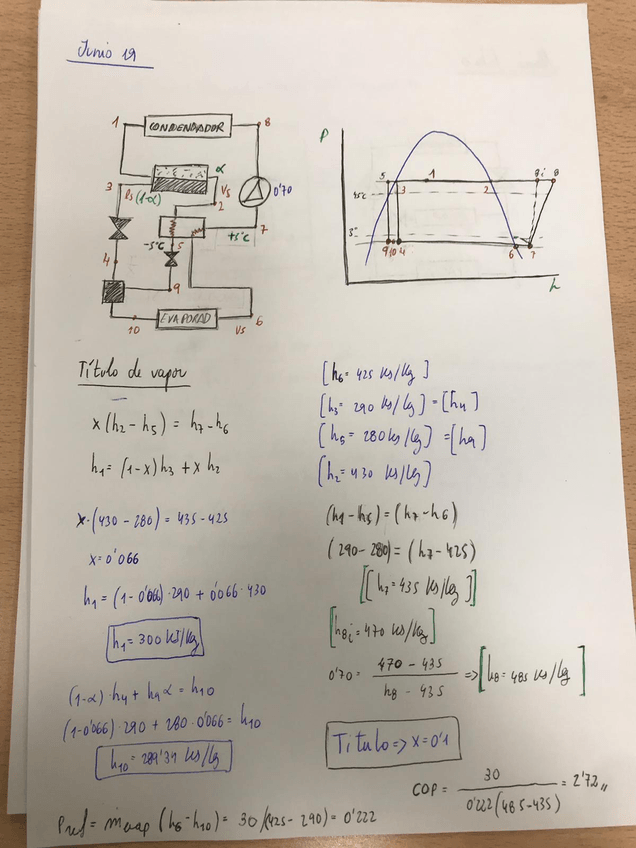 Junio 19
1
CONDENSADOR
8
3
ls (1-α)
α
Vs
2
0'70
-5°C
5
+5°C
7
4
9
10
EVAPORAD
Vs
6
P
5
3
1
2
8i
8
45°C
5°
9
10
4
6
7
h
Título de vapor
x(h2 - h5) = h7 - h6
h1 = (1-x)h3 + x h2
x·(430 - 280) = 435 - 425
x = 0'066
h1 = (1-0'066)·290 + 0'066·430
h1 = 300 kJ/kg
(1-α)·h4 + h9 α = h10
(1-0'066)·290 + 280·0'066 = h10
h10 = 289'34 kJ/kg
[h6 = 425 kJ/kg]
[h3 = 290 kJ/kg] = [h4]
[h5 = 280 kJ/kg] = [h9]
[h2 = 430 kJ/kg]
(h1 - h5) = (h7 - h6)
(290 - 280) = (h7 - 425)
[[h7 = 435 kJ/kg]]
[h8i = 470 kJ/kg]
0'70 = (470 - 435)/(h8 - 435) => [h8 = 485 kJ/kg]
Título => x = 0'1
COP = 30/(0'222(485-435)) = 2'72,,
Pref = ṁevap (h6 - h10) = 30/(425 - 290) = 0'222